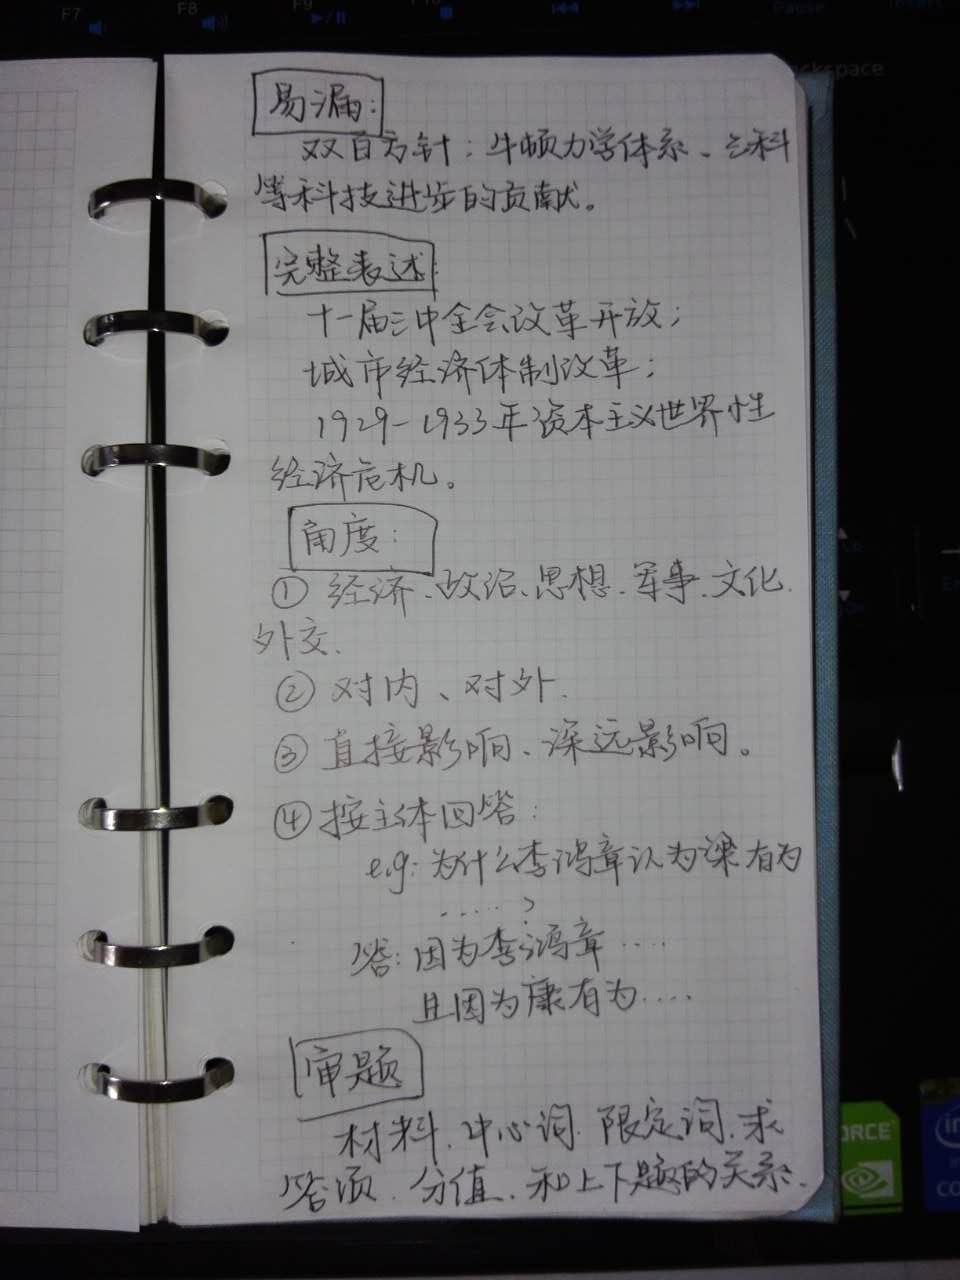 F7
F8
F9
Pause
ckspace
易漏:
双百方针;牛顿力学体系、三科
等科技进步的贡献。
完整表述:
十一届三中全会改革开放;
城市经济体制改革;
1929-1933年资本主义世界性
经济危机。
角度:
① 经济、政治、思想、军事、文化、
外交.
② 对内、对外.
③ 直接影响、深远影响。
④ 按主体回答:
e.g: 为什么李鸿章认为梁有为
.....?
答: 因为李鸿章....
且因为康有为....
审题
材料、中心词、限定词、求
答项、分值、和上下题的关系.
ORCE